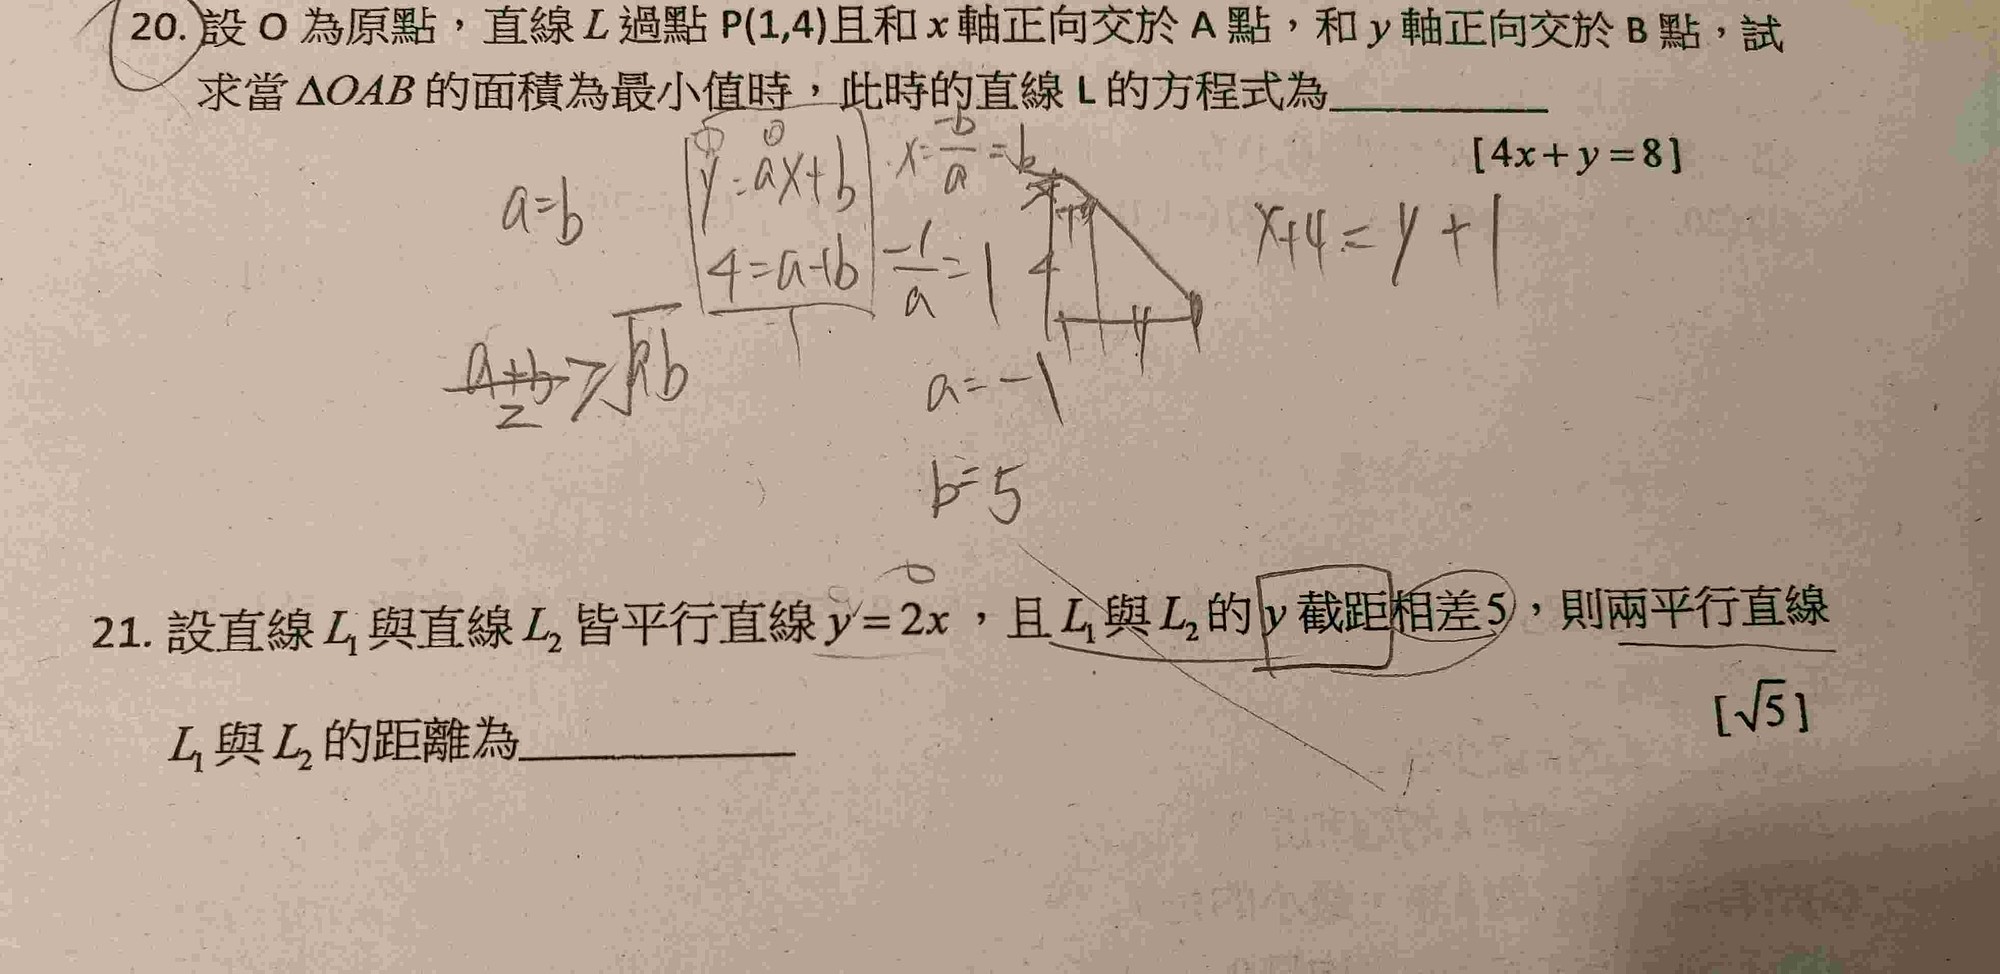 20. 設 O 為原點，直線 L 過點 P(1,4)且和 x 軸正向交於 A 點，和 y 軸正向交於 B 點，試
求當 ΔOAB 的面積為最小值時，此時的直線 L 的方程式為__________
[4x+y=8]
a=b
y=ax+b
4=a+b
x=-b/a=b
-1/a=1
a=-1
b=5
x+4=y+1
a+b/2≥√ab
21. 設直線 L₁ 與直線 L₂ 皆平行直線 y=2x，且 L₁ 與 L₂ 的 y 截距相差 5，則兩平行直線
[√5]
L₁ 與 L₂ 的距離為__________